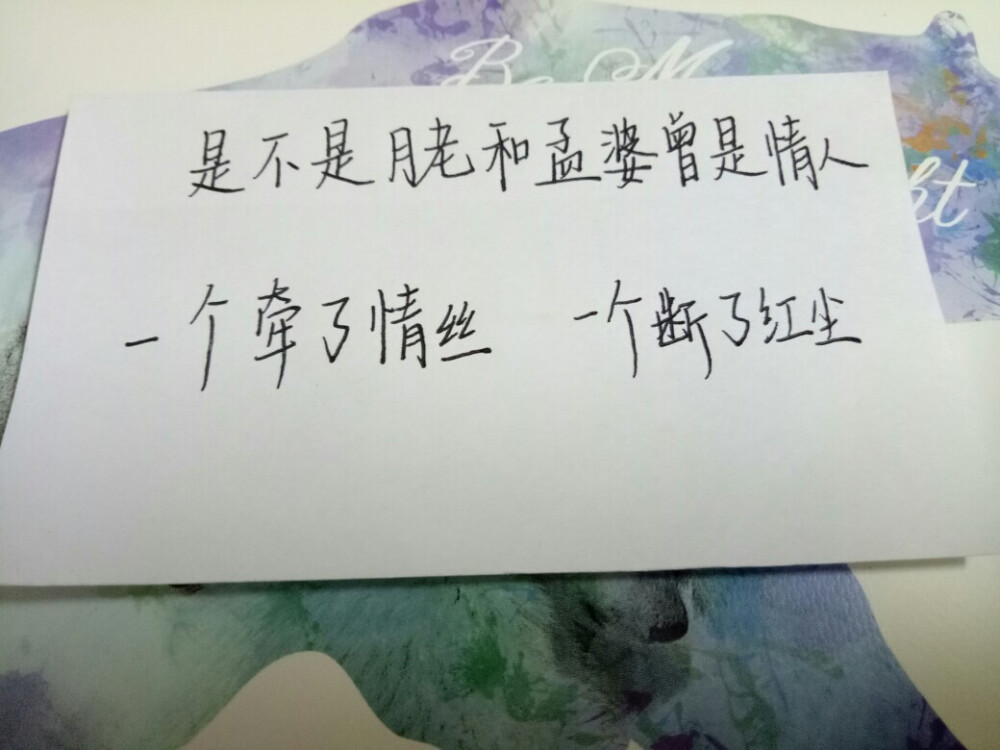 Be M
ht
是不是月老和孟婆曾是情人
一个牵了情丝 一个断了红尘